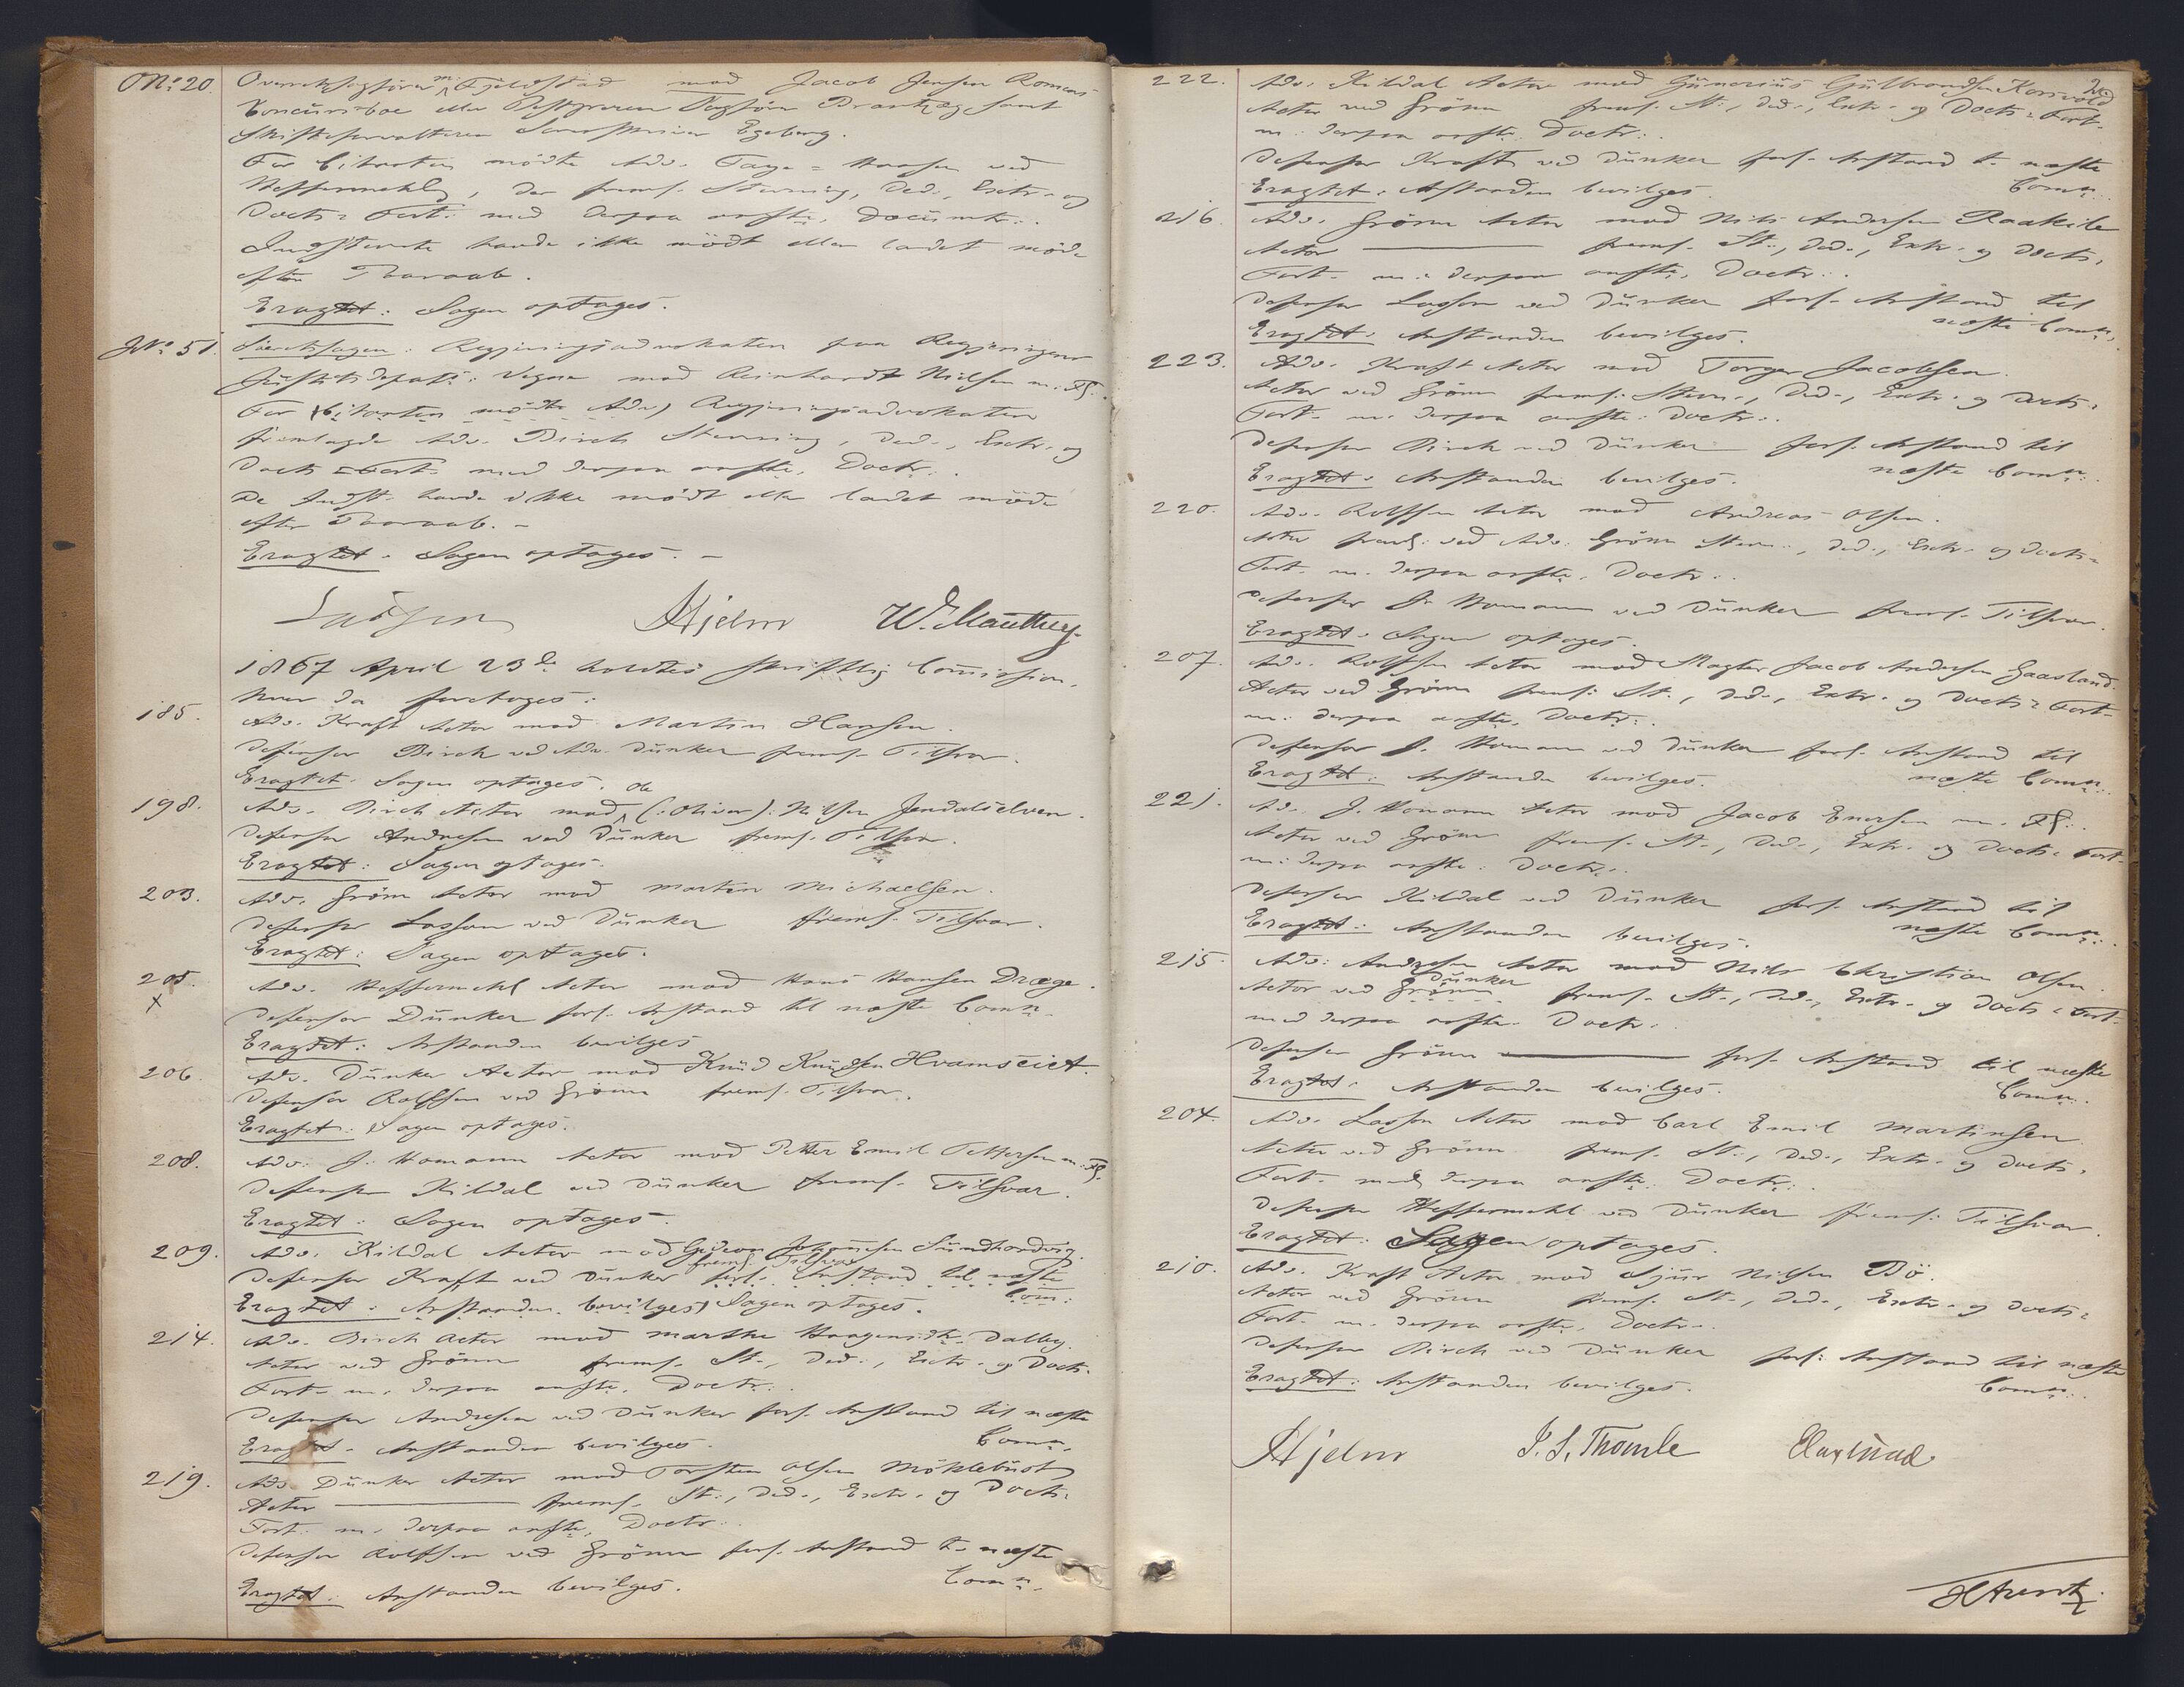 O No 20. Overretssagfører m: Fjeldstad mod Jacob Jensen Romcas
Concursboe eller Sagfører Brantzæg samt
Skifteforvalteren Sorenskriver Egeberg.
For Citanten mødte Adv. Faye-Hansen ved
Heffermehl, der freml. Stevning, Ded., Extr. og
Docts. Fort. med derpaa anførte Documtr.
Indstevnte havde ikke mødt eller ladet møde
efter Paaraab.
Eragtet: Sagen optages.
No 51. Søeretssagen: Regjeringsadvokaten paa Regjeringens
Justitsdepts: Vegne mod Reinhardt Nielsen m. Fl:
For (Citanten mødte Adv.) Regjeringsadvokaten
fremlagde Adv. Birch Stevning, Ded., Extr. og
Docts Fort. med derpaa anførte Doctr:.
De Indst. havde ikke mødt eller ladet møde
efter Paaraab. –
Eragtet. Sagen optages. –
Lassen Hjelm W. Manthey
1867 April 23de holdtes skriftlig Commission,
hvor da foretoges:
185. Adv. Kraft Actor mod Martin Hansen.
Defensor Birch ved Adv. Dünker freml. Tilsvar.
Eragtet. Sagen optages.
198. Adv. Birch Actor mod Ole (: Oliver :) Nilsen Jendalselven.
Defensor Andresen ved Dünker freml. Tilsvar.
Eragtet: Sagen optages.
203. Adv. Grönn Actor mod Martin Michaelsen.
Defensor Lasson ved Dünker freml. Tilsvar.
Eragtet: Sagen optages.
205. Adv. Heffermehl Actor mod Hans Hansen Dræge.
x Defensor Dünker forl. Anstand til næste Comn.
Eragtet: Anstanden bevilges
206. Adv. Dünker Actor mod Knüd Knüdsen Hvamseiet.
Defensor Rolfsen ved Grönn freml. Tilsvar.
Eragtet: Sagen optages.
208. Adv. J. Homann Actor mod Petter Emil Pettersen m. Fl.
Defensor Kildal ved Dünker freml. Tilsvar.
Eragtet: Sagen optages.
209. Adv. Kildal Actor mod Gideon Johannesen Sündhordvig.
freml. Tilsvar
Defensor Kraft ved Dünker forl. Anstand til næste
Com:
Eragtet: Anstanden bevilges) Sagen optages.
214. Adv. Birch Actor mod Marthe Haagensdtr. Dalby.
Actor ved Grönn freml. St., Ded., Extr. og Docts.
Fort. m. derpaa anførte Doctr:.
Defensor Andresen ved Dünker forl. Anstand til næste
Eragtet. Anstanden bevilges. Comn.
219. Adv. Dünker Actor mod Torsten Olsen Möklebüst
Actor ——— freml. St., Ded., Extr. og Docts:
Fort. m. derpaa anførte Doctr:
Defensor Rolfsen ved Grönn forl. Anstand t. næste
Eragtet: Anstanden bevilges. Comn.
222. Adv. Kildal Actor mod Günerius Gülbrandsen Korsvold
Actor ved Grönn freml. St., Ded., Extr. og Docts: Fort.
m. derpaa anførte Doctr:.
Defensor Kraft ved Dünker forl. Anstand t. næste
Eragtet: Anstanden bevilges. Comn.
216. Adv. Grönn Actor mod Nils Andersen Raakile
Actor ——— freml. St., Ded., Extr. og Docts.
Fort. m. derpaa anførte Doctr:.
Defensor Lasson ved Dünker forl. Anstand til
Eragtet: Anstanden bevilges. næste Comn.
223. Adv. Kraft Actor mod Torger Jacobsen.
Actor ved Grönn freml. Stevn., Ded., Extr. og Docts:
Fort. m. derpaa anførte Doctr:.
Defensor Birch ved Dünker forl. Anstand til
Eragtet: Anstanden bevilges. næste Comn:.
220. Adv. Rolfsen Actor mod Andreas Olsen.
Actor freml. ved Adv. Grönn Stevn., Ded., Extr. og Docts.
Fort. m. derpaa anførte Doctr:.
Defensor J. Homann ved Dünker freml. Tilsvar.
Eragtet: Sagen optages.
207. Adv. Rolfsen Actor mod Magter Jacob Andersen Gaasland.
Actor ved Grönn freml. St., Ded., Extr. og Docts: Fort.
m. derpaa anførte Doctr:.
Defensor J. Homann ved Dünker forl. Anstand til
Eragtet: Anstanden bevilges. næste Comn:.
221. Adv. J. Homann Actor mod Jacob Enersen m. Fl:.
Actor ved Grönn freml. St., Ded., Extr. og Docts: Fort.
m. derpaa anførte Doctr:.
Defensor Kildal ved Dünker forl. Anstand til
Eragtet: Anstanden bevilges. næste Comn:.
215. Adv. Andresen Actor mod Nils Christian Olsen.
Dünker
Actor ved Grönn freml. St., Ded., Extr. og Docts: Fort.
med derpaa anførte Doctr.
Defensor Grönn ——— forl. Anstand til næste
Eragtet: Anstanden bevilges. Comn.
204. Adv. Lasson Actor mod Carl Emil Martinsen
Actor ved Grönn freml. St., Ded., Extr. og Docts.
Fort. med derpaa anførte Doctr:.
Defensor Heffermehl ved Dünker freml. Tilsvar.
Eragtet: Sagen optages.
210. Adv. Kraft Actor mod Sjür Nilsen Bö.
Actor ved Grönn freml. St., Ded., Extr. og Docts:
Fort. m. derpaa anførte Doctr.
Defensor Birch ved Dünker forl. Anstand til næste
Eragtet: Anstanden bevilges. Comn:.
Hjelm I. S. Thomle